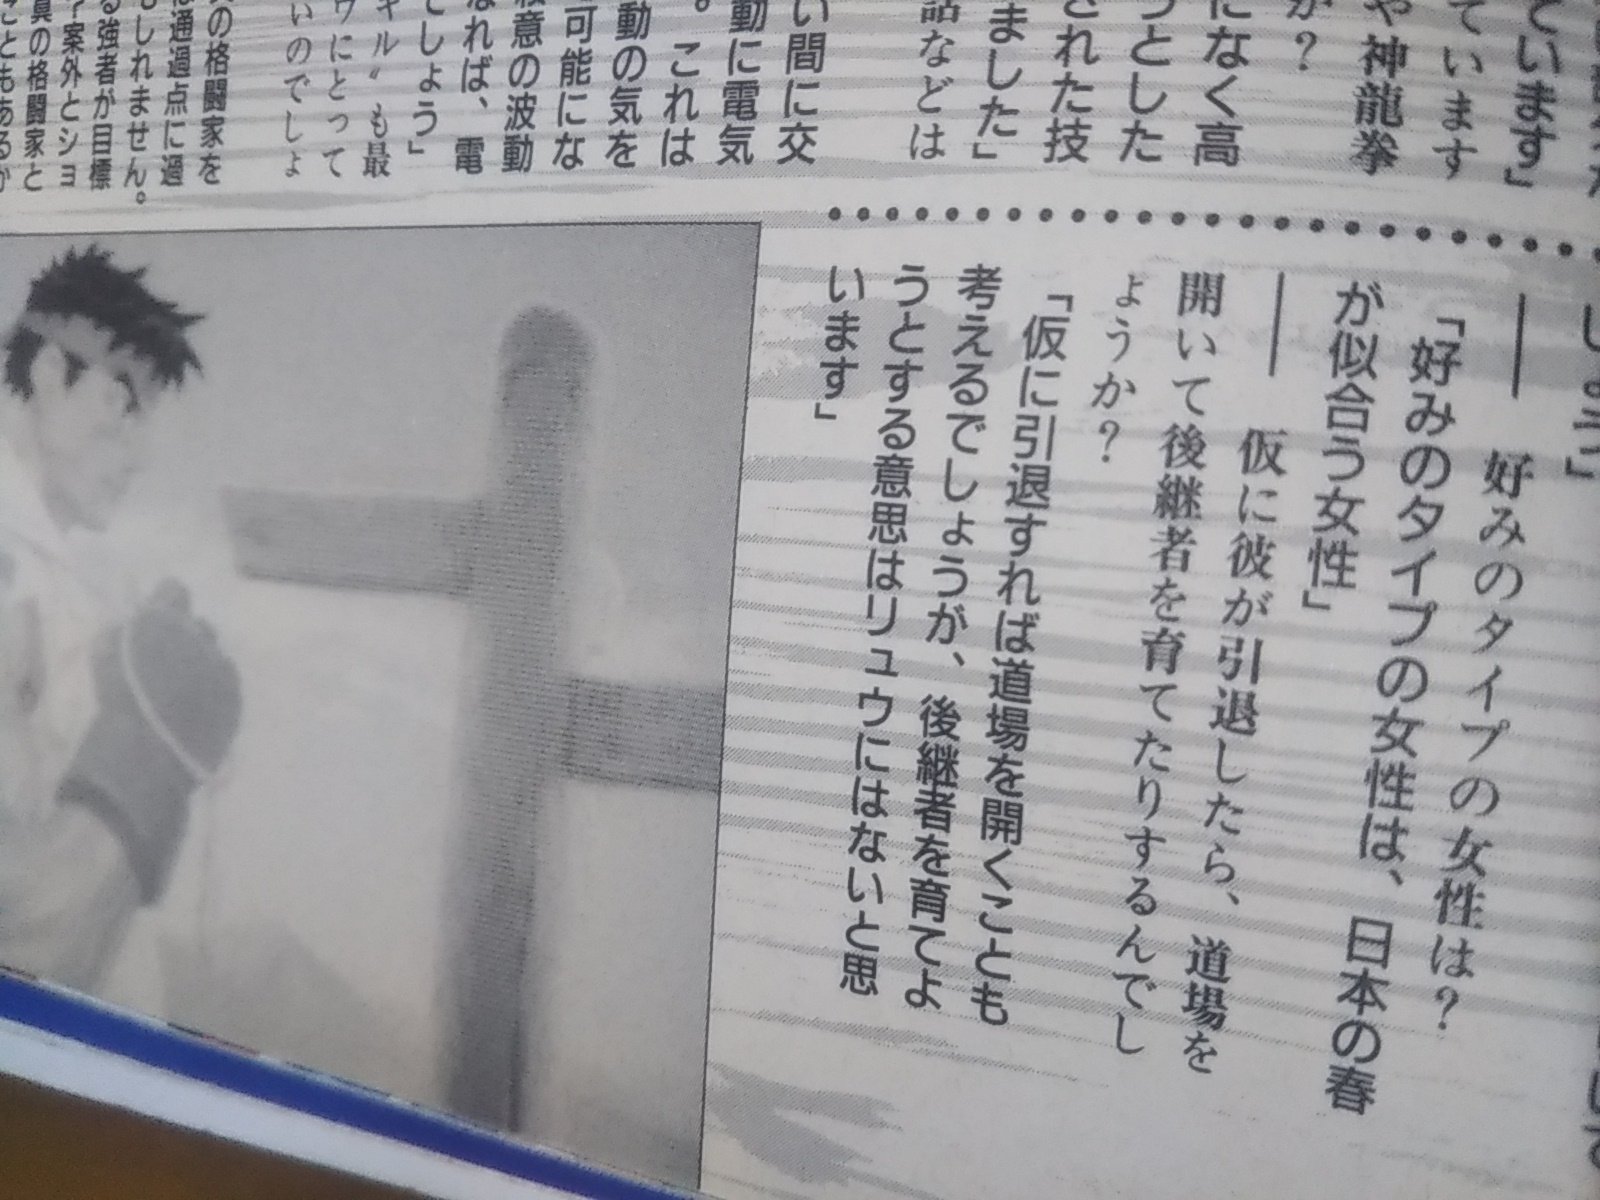 しょう」
―― 好みのタイプの女性は？
「好みのタイプの女性は、日本の春
が似合う女性」
―― 仮に彼が引退したら、道場を
開いて後継者を育てたりするんでし
ょうか？
「仮に引退すれば道場を開くことも
考えるでしょうが、後継者を育てよ
うとする意思はリュウにはないと思
います」
ています」
ています
や神龍拳
か？
になく高
っとした
された技
ました」
話などは
い間に交
動に電気
。これは
動の気を
可能にな
殺意の波動
なれば、電
でしょう」
キル〟も最
ウにとって
いのでしょ
の格闘家を
は通過点に過
もしれません。
る強者が目標
案外とショ
真の格闘家と
こともあるか